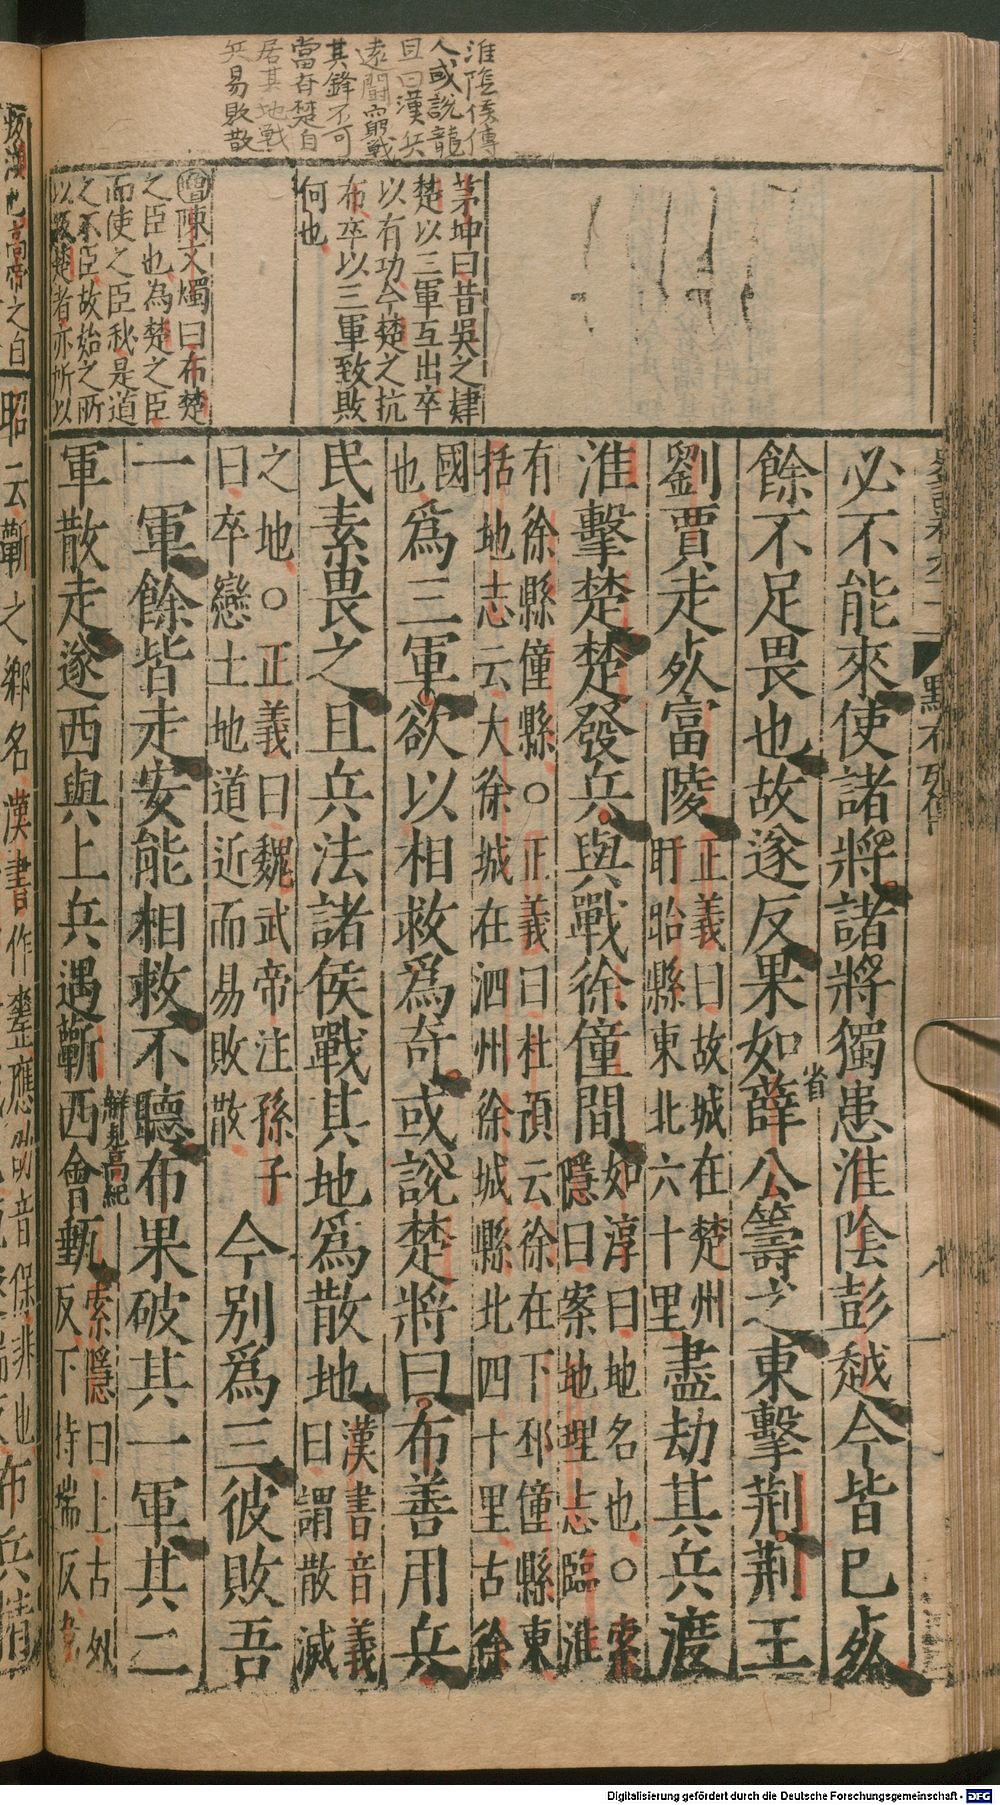 淮陰侯傳
人或說龍
且曰漢兵
遠鬪窮戰
其鋒不可
當齊楚自
居其地戰
兵易敗散
茅坤曰昔吳之肄
楚以三軍互出卒
以有功今楚之抗
布卒以三軍致敗
何也
增陳文燭曰布楚
之臣也為楚之臣
而使之臣秘是道
之不臣故始之所
以叛楚者亦所以
必不能來使諸將諸將獨患淮陰彭越今皆已死
餘不足畏也故遂反果如薛公籌之東擊荆荆王
省
劉賈走死富陵正義曰故城在楚州
盱眙縣東北六十里盡劫其兵渡
淮擊楚楚發兵與戰徐僮間如淳曰地名也○索
隱曰案地理志臨淮
有徐縣僮縣○正義曰杜預云徐在下邳僮縣東
括地志云大徐城在泗州徐城縣北四十里古徐
國
也為三軍欲以相救為奇或說楚將曰布善用兵
民素畏之且兵法諸侯戰其地為散地漢書音義
曰謂散滅
之地○正義曰魏武帝注孫子
曰卒戀土地道近而易敗散今别為三彼敗吾
一軍餘皆走安能相救不聽布果破其一軍其二
軍散走遂西與上兵遇蘄西會甀索隱曰上古外
反下持瑞反
解見高紀
昭云蘄之鄉名漢書作
應劭音保非也布兵精
黥布列傳
Digitalisierung gefördert durch die Deutsche Forschungsgemeinschaft - DFG